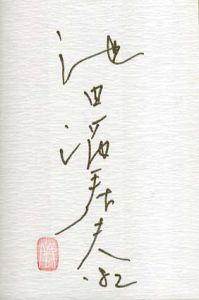 池田満寿夫
'82